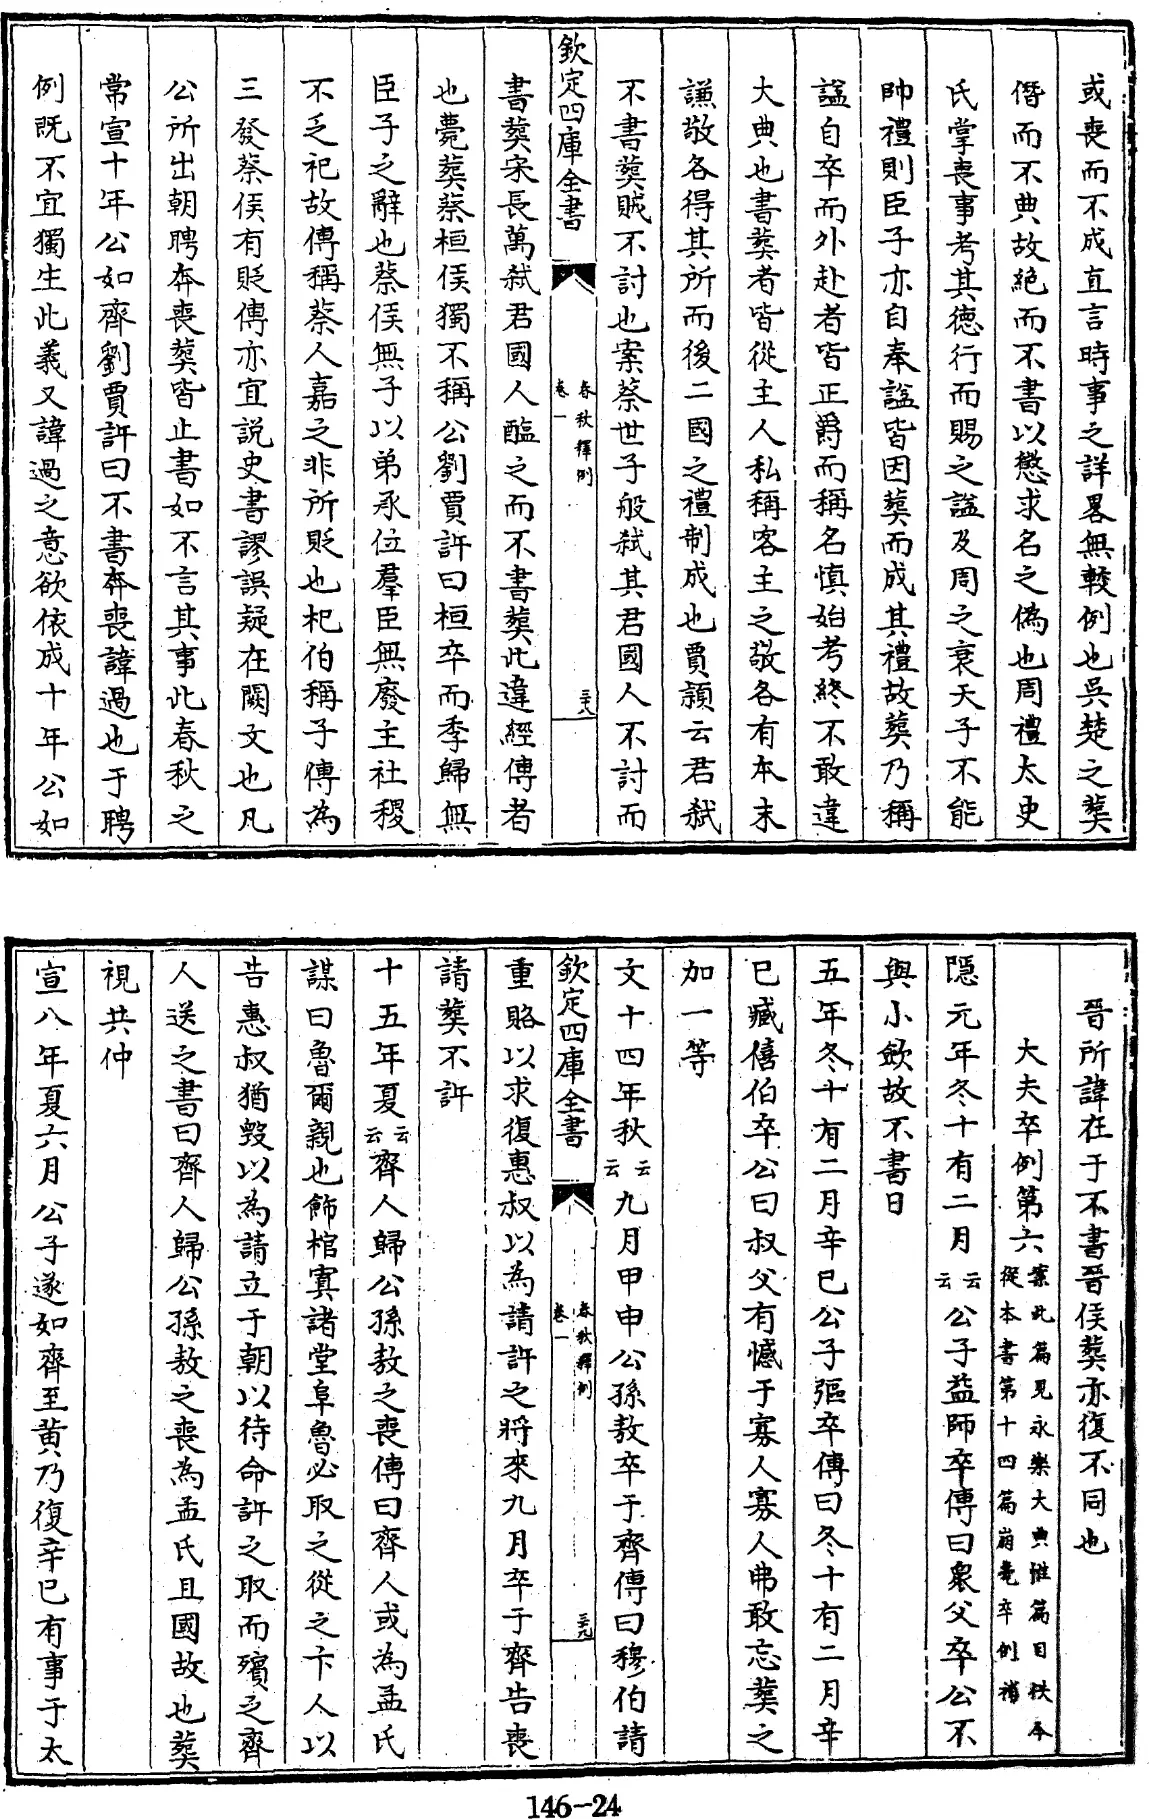 或喪而不成直言時事之詳畧無較例也吳楚之葬
僭而不典故絶而不書以懲求名之偽也周禮太史
氏掌喪事考其德行而賜之諡及周之衰天子不能
帥禮則臣子亦自奉諡皆因葬而成其禮故葬乃稱
諡自卒而外赴者皆正爵而稱名慎始考終不敢違
大典也書葬者皆從主人私稱客主之敬各有本末
謙敬各得其所而後二國之禮制成也賈頴云君弑
不書葬賊不討也案蔡世子般弑其君國人不討而
欽定四庫全書
春秋釋例
卷一
三十八
書葬宋長萬弑君國人醢之而不書葬此違經傳者
也薨葬蔡桓侯獨不稱公劉賈許曰桓卒而季歸無
臣子之辭也蔡侯無子以弟承位羣臣無廢主社稷
不乏祀故傳稱蔡人嘉之非所貶也杞伯稱子傳為
三發蔡侯有貶傳亦宜説史書謬誤疑在闕文也凡
公所出朝聘奔喪葬皆止書如不言其事此春秋之
常宣十年公如齊劉賈許曰不書奔喪諱過也于聘
例既不宜獨生此義又諱過之意欲依成十年公如
晉所諱在于不書晉侯葬亦復不同也
大夫卒例第六 案此篇見永樂大典惟篇目秩今
從本書第十四篇崩薨卒例補
隠元年冬十有二月云云公子益師卒傳曰衆父卒公不
與小歛故不書日
五年冬十有二月辛巳公子彄卒傳曰冬十有二月辛
巳臧僖伯卒公曰叔父有憾于寡人寡人弗敢忘葬之
加一等
文十四年秋云云九月甲申公孫敖卒于齊傳曰穆伯請
欽定四庫全書
春秋釋例
卷一
三十九
重賂以求復惠叔以為請許之將來九月卒于齊告喪
請葬不許
十五年夏云云齊人歸公孫敖之喪傳曰齊人或為孟氏
謀曰魯爾親也飾棺寘諸堂阜魯必取之從之卞人以
告惠叔猶毁以為請立于朝以待命許之取而殯之齊
人送之書曰齊人歸公孫敖之喪為孟氏且國故也葬
視共仲
宣八年夏六月公子遂如齊至黄乃復辛巳有事于太
146-24